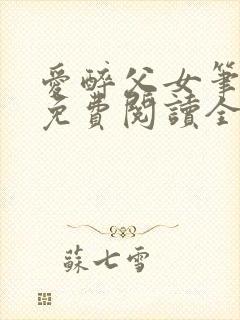 愛醉父女筆
免費閱讀全
蘇七雪